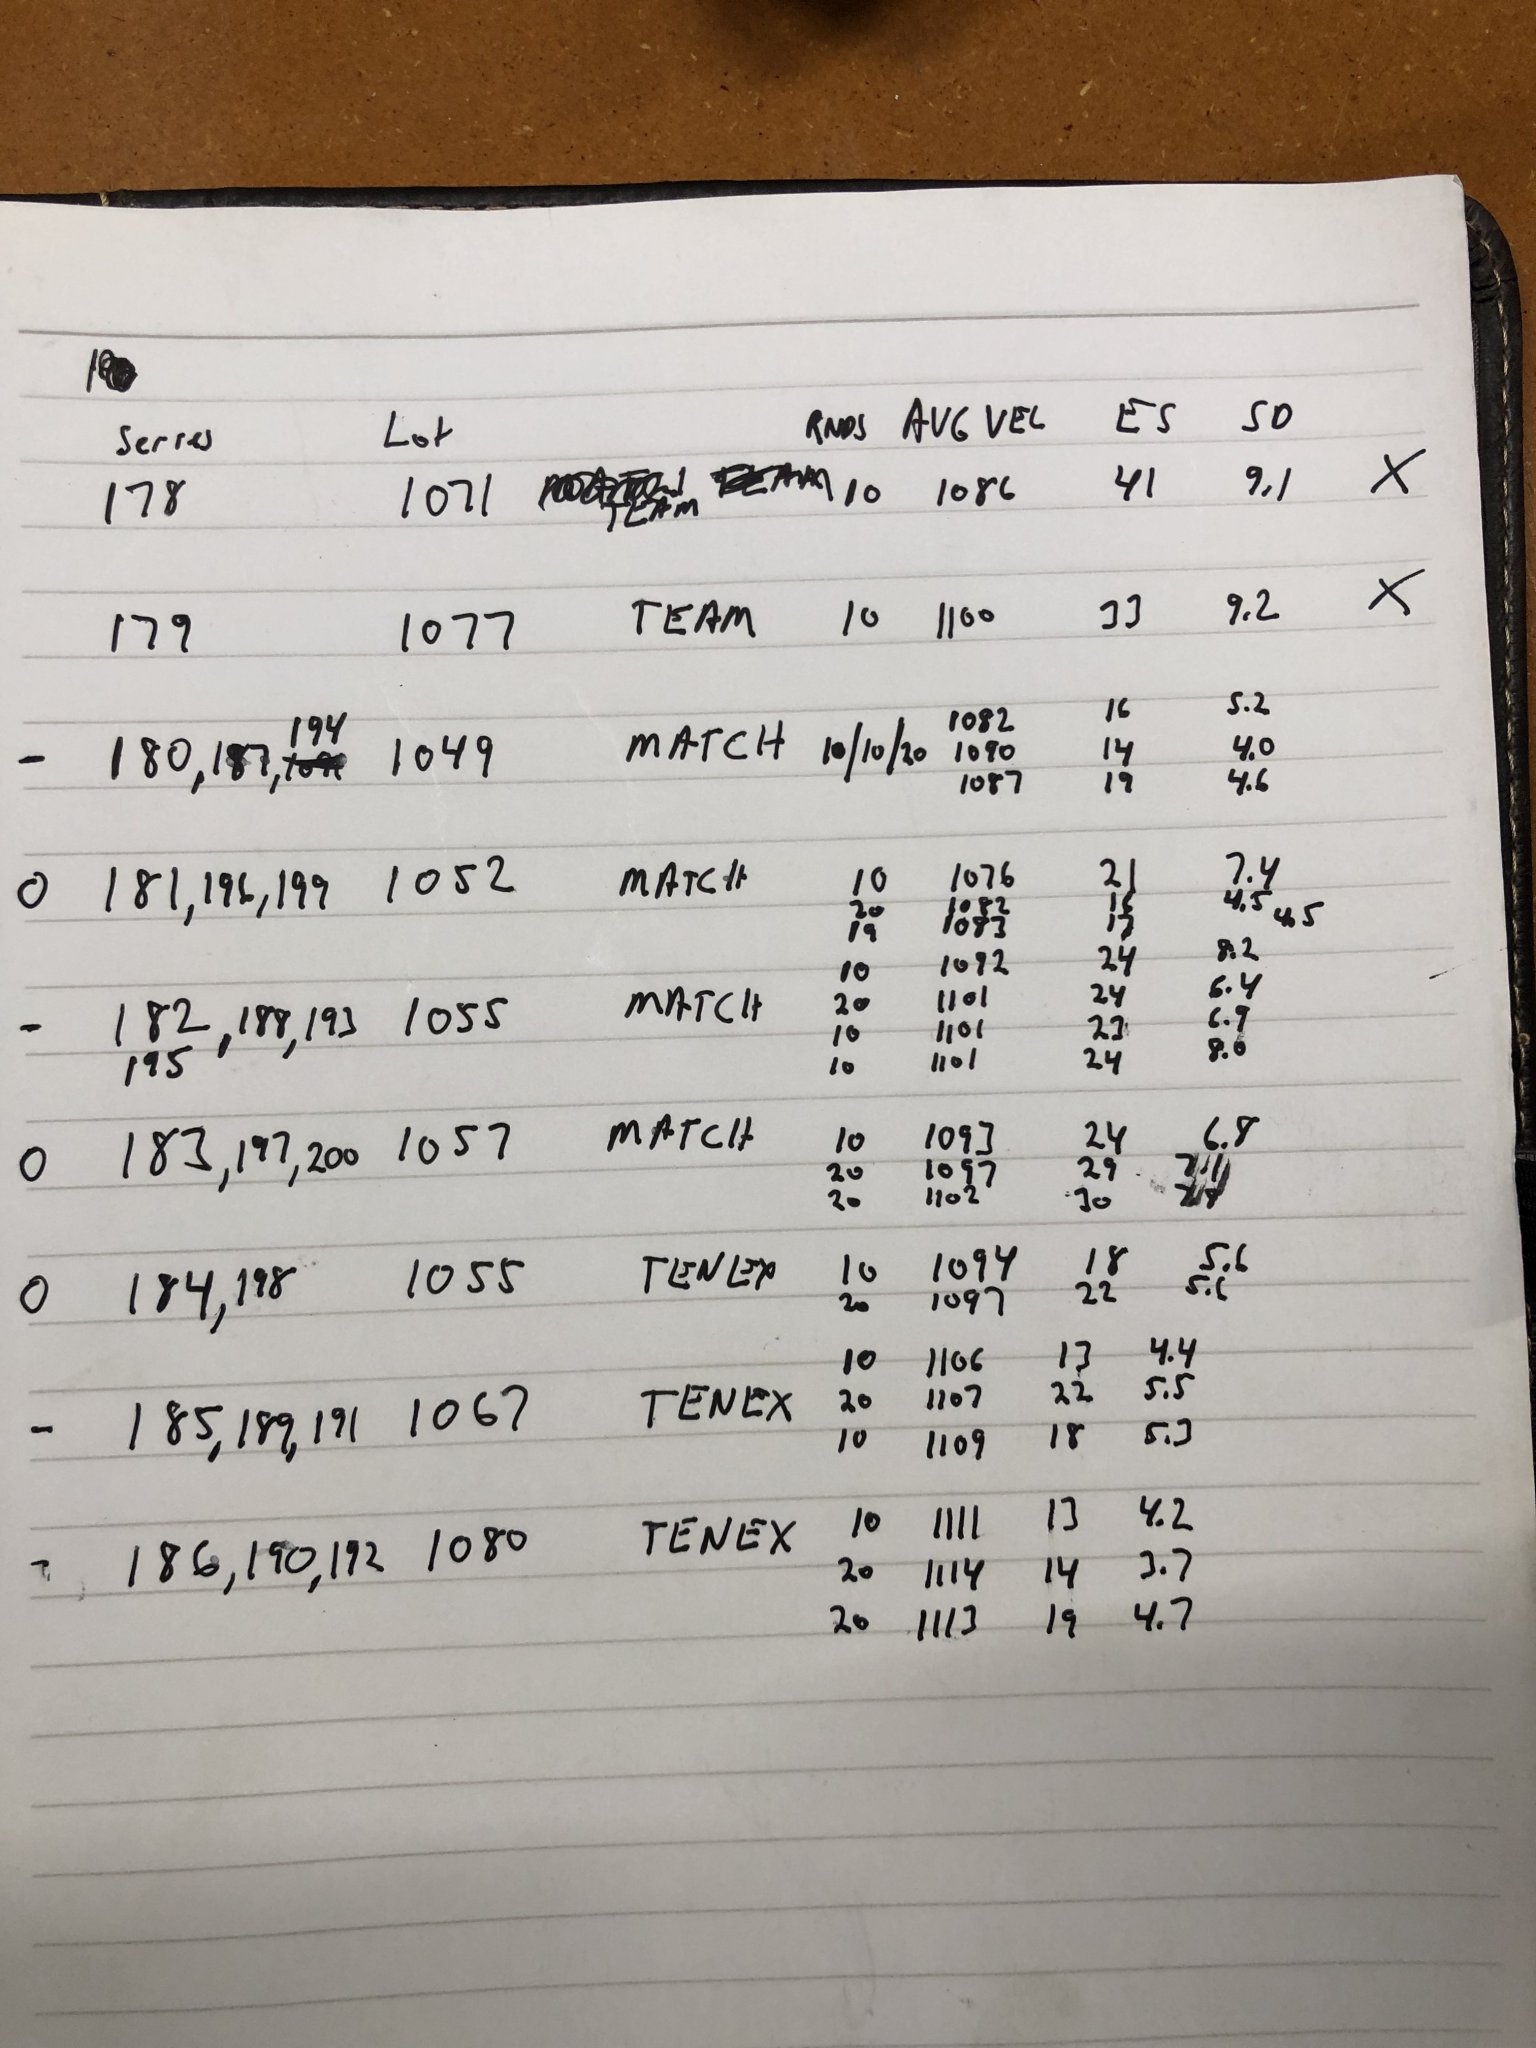 Series Lot RNDS AVG VEL ES SD
178 1071 TEAM 10 1086 41 9.1 X
179 1077 TEAM 10 1100 33 9.2 X
1082 16 5.2
194
- 180, 187, 1049 MATCH 10/10/20 1090 14 4.0
1087 19 4.6
0 181, 196, 199 1052 MATCH 10 1076 21 7.4
20 1082 4.5
19 1083 17 4.5
10 1092 24 8.2
- 182, 188, 193 1055 MATCH 20 1101 24 6.4
10 1101 23 6.9
195 10 1101 24 8.0
0 183, 197, 200 1057 MATCH 10 1093 24 6.8
20 1097 29
20 1102 30
0 184, 198 1055 TENEX 10 1094 18 5.6
20 1097 22 5.6
10 1106 13 4.4
- 185, 189, 191 1067 TENEX 20 1107 22 5.5
10 1109 18 5.3
- 186, 190, 192 1080 TENEX 10 1111 13 4.2
20 1114 14 3.7
20 1113 19 4.7